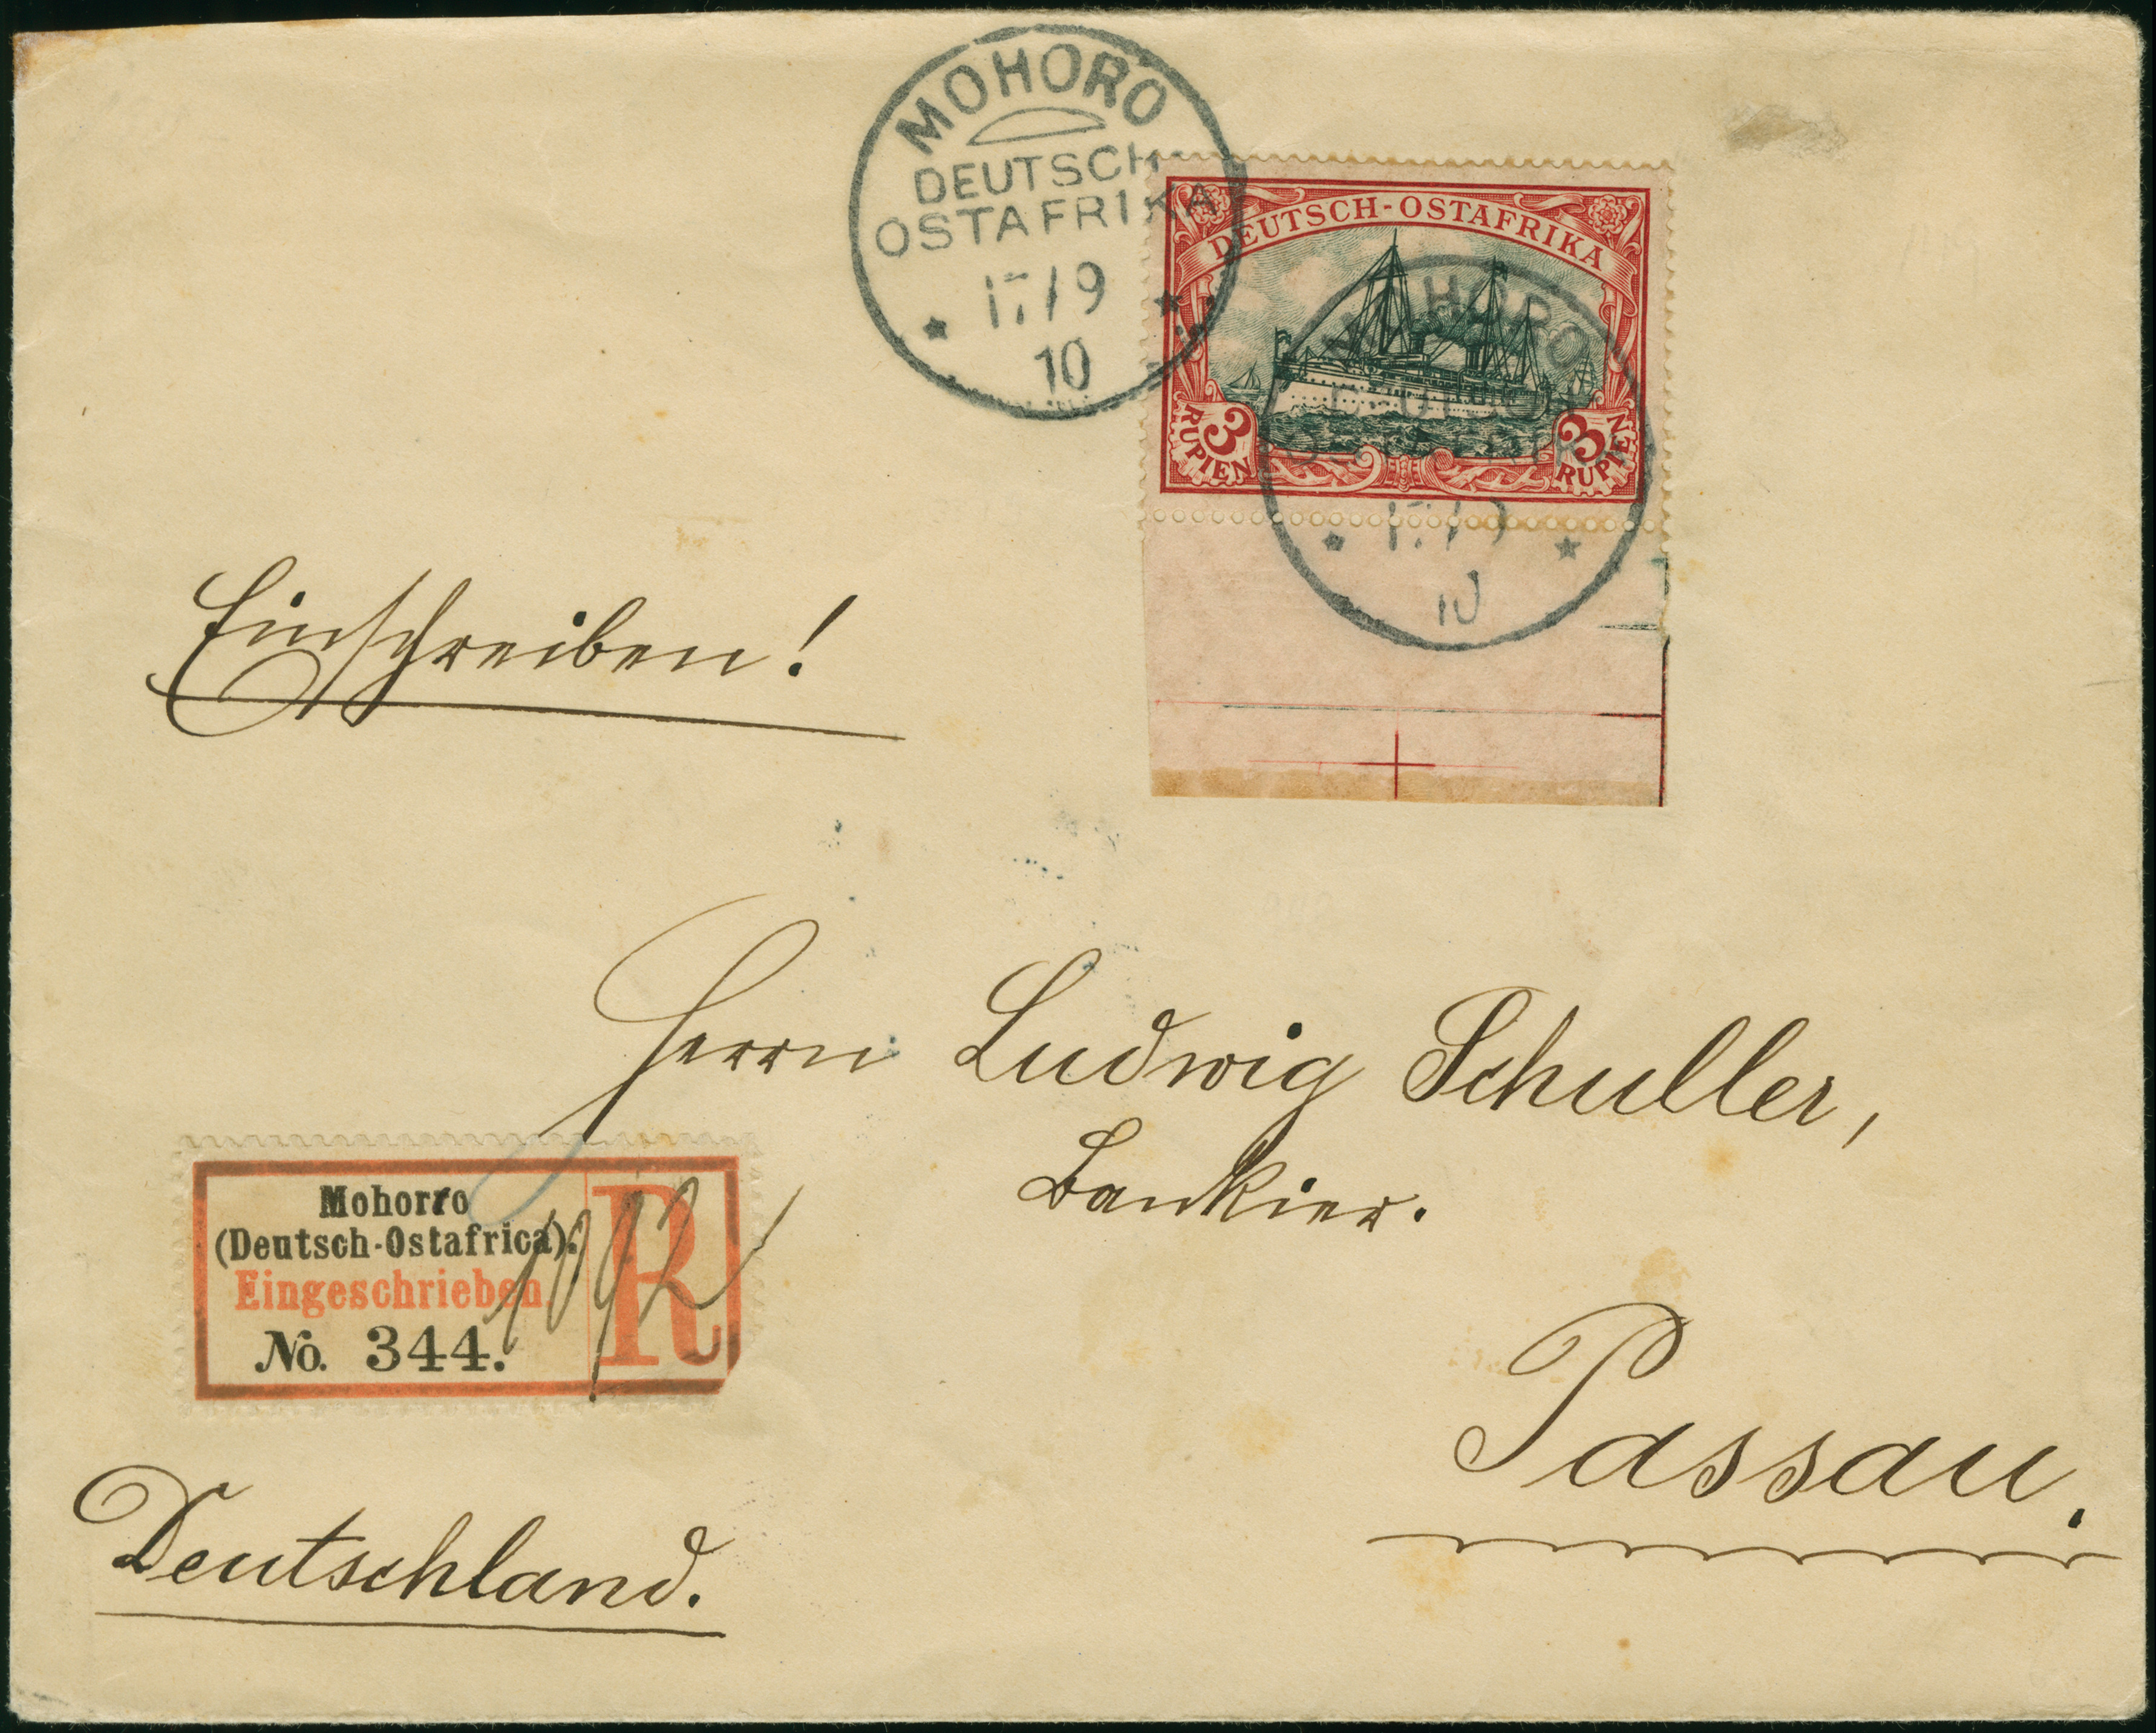 MOHORO
DEUTSCH
OSTAFRIKA
17/9
10
DEUTSCH-OSTAFRIKA
3
RUPIEN
3
RUPIEN
MOHORO
17/9
10
Einschreiben!
Herrn Ludwig Schuller,
Bankier.
Mohorro
(Deutsch-Ostafrica).
Eingeschrieben.
No. 344.
R
1092
Passau.
Deutschland.